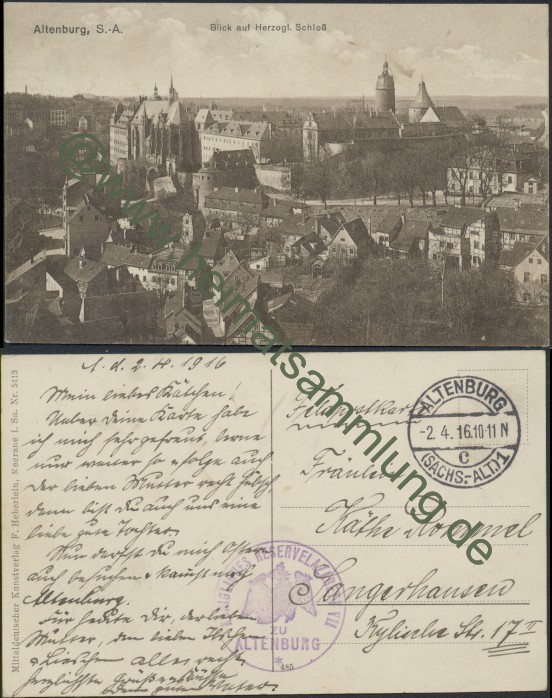 Altenburg, S.-A.
Blick auf Herzogl. Schloß
@ www.heimatsammlung.de
d. 2. 4. 1916
Mein liebes Käthchen!
Ueber deine Karte habe
ich mich sehr gefreut, lerne
nur weiter so & folge auch
der lieben Mutter recht hübsch,
denn bist du auch uns eine
liebe gute Tochter.
Nun darfst du mich Ostern
auch besuchen & kommst nach
Altenburg.
Für heute dir, der lieben
Mutter, den lieben
& Lieschen alles recht
herzlichste Grüße & Küsse
Vater.
Feldpostkarte
Fräulein
Käthe
Sangerhausen
Kylische Str. 17 II
ALTENBURG
-2. 4. 16. 10-11 N
c
(SACHS.-ALT.) 1
RESERVELAZARETT VII
ZU
ALTENBURG
485
Mitteldeutscher Kunstverlag F. Heberlein, Meerane i. Sa. Nr. 5113